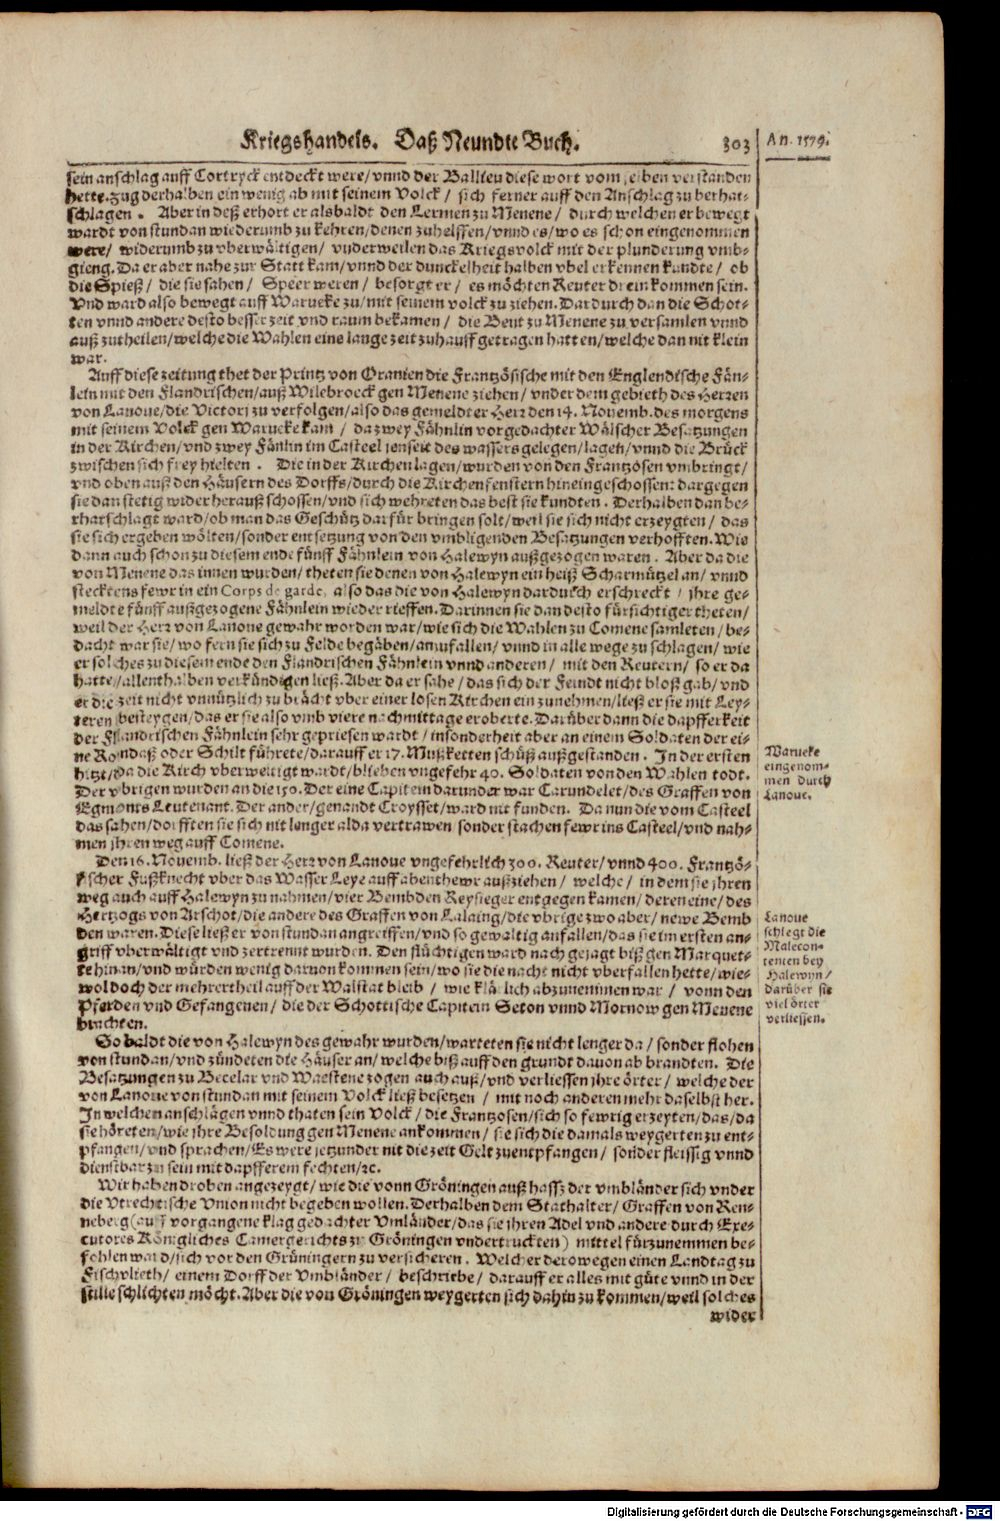 Kriegshandels. Daß Neundte Buch. 303 An. 1579.
sein anschlag auff Cortryck entdeckt were/ vnnd der Ballieu diese wort vom selben verstanden
hette. zug derhalben ein wenig ab mit seinem Volck/ sich ferner auff den Anschlag zu berhat-
schlagen. Aber in deß erhört er alsbaldt den Lermen zu Menene/ durch welchen er bewegt
wardt von stundan wiederumb zu kehren/ denen zuhelffen/ vnnd es/ wo es schon eingenommen
were/ widerumb zu vberwältigen/ vnderweilen das Kriegsvolck mit der plunderung vmb-
gieng. Da er aber nahe zur Statt kam/ vnnd der dunckelheit halben vbel erkennen kundte/ ob
die Spieß/ die sie sahen/ Speer weren/ besorgt er/ es möchten Reuter drein kommen sein.
Vnd ward also bewegt auff Warueke zu/ mit seinem volck zu ziehen. Dardurch dan die Schot-
ten vnnd andere desto besser zeit vnd raum bekamen/ die Beut zu Menene zu versamlen vnnd
auß zutheilen/ welche die Wahlen eine lange zeit zuhauff getragen hatten/ welche dan nit klein
war.
Auff diese zeitung thet der Printz von Oranien die Frantzösische mit den Englendische Fän-
lein mit den Flandrischen/ auß Wilebroeck gen Menene ziehen/ vnder dem gebieth des Herren
von Lanoue/ die Victori zu verfolgen/ also das gemeldter Herr den 14. Nouemb. des morgens
mit seinem Volck gen Waruеke kam/ da zwey Fähnlin vorgedachter Wälscher Besatzungen
in der Kirchen/ vnd zwey Fänlin im Casteel jenseit des wassers gelegen/ lagen/ vnnd die Brück
zwischen sich frey hielten. Die in der Kirchen lagen/ wurden von den Frantzösen vmbringt/
vnd oben auß den Häusern des Dorffs/ durch die Kirchenfenstern hineingeschossen: dargegen
sie dan stetig wider herauß schossen/ vnd sich wehreten das best sie kundten. Derhalben dan be-
rharschlagt ward/ ob man das Geschütz darfür bringen solt/ weil sie sich nicht erzeygten/ das
sie sich ergeben wölten/ sonder entsetzung von den vmbligenden Besatzungen verhofften. Wie
dann auch schon zu diesem ende fünff Fähnlein von Halewyn außgezogen waren. Aber da die
von Menene das innen wurden/ theten sie denen von Halewyn ein heiß Scharmützel an/ vnnd
stecktens fewr in ein Corps de garde, also das die von Halewyn dardurch erschreckt/ ihre ge-
meldte fünff außgezogene Fähnlein wieder rieffen. Darinnen sie dan desto fürsichtiger theten/
weil der Herr von Lanoue gewahr worden war/ wie sich die Wahlen zu Comene samleten/ be-
dacht war sie/ wo fern sie sich zu Felde begäben/ anzufallen/ vnnd in alle wege zu schlagen/ wie
er solches zu diesem ende den Flandrischen Fähnlein vnnd anderen/ mit den Reutern/ so er da
hatte/ allenthalben verkündigen ließ. Aber da er sahe/ das sich der Feindt nicht bloß gab/ vnd
er die zeit nicht vnnützlich zu brächt vber einer losen Kirchen ein zunehmen/ ließ er sie mit Ley-
teren besteygen/ das er sie also vmb viere nachmittage eroberte. Darüber dann die dapfferkeit
der Flandrischen Fähnlein sehr gepriesen wardt/ insonderheit aber an einem Soldaten der ei-
ne Rondaß oder Schilt führete/ darauff er 17. Mußketten schüß außgestanden. In der ersten
hitzt/ da die Kirch vberweltigt wardt/ blieben vngefehr 40. Soldaten von den Wahlen todt.
Der vbrigen wurden an die 150. Der eine Capitein darunder war Carundelet/ des Graffen von
Egmonts Leutenant. Der ander/ genandt Croysset/ ward nit funden. Da nun die vom Casteel
das sahen/ dorfften sie sich nit lenger alda vertrawen/ sonder stachen fewr ins Casteel/ vnd nah-
men ihren weg auff Comene.
Waruеke
eingenom-
men durch
Lanoue.
Den 16. Nouemb. ließ der Herr von Lanoue vngefehrlich 300. Reuter/ vnnd 400. Frantzö-
scher Fußknecht vber das Wasser Leye auff abenthewr außziehen/ welche/ in dem sie ihren
weg auch auff Halewyn zu nahmen/ vier Bembden Reysieger entgegen kamen/ deren eine/ des
Hertzogs von Arschot/ die andere des Graffen von Lalaing/ die vbrige zwo aber/ newe Bemb
den waren. Diese ließ er von stundan angreiffen/ vnd so gewaltig anfallen/ das sie im ersten an-
griff vberwältigt vnd zertrennt wurden. Den flüchtigen ward nach gejagt biß gen Marquet-
te hinan/ vnd würden wenig daruon kommen sein/ wo sie die nacht nicht vberfallen hette/ wie-
wol doch der mehrertheil auff der Walstat bleib/ wie klärlich abzunemmen war/ vonn den
Pferden vnd Gefangenen/ die der Schottische Capitein Seton vnnd Mornow gen Menene
brachten.
Lanoue
schlegt die
Malecon-
tenten bey
Halewyn/
darüber sie
viel örter
verliessen.
So baldt die von Halewyn des gewahr wurden/ warteten sie nicht lenger da/ sonder flohen
von stundan/ vnd zündeten die Häuser an/ welche biß auff den grundt dauon ab brandten. Die
Besatzungen zu Becelar vnd Waestene zogen auch auß/ vnd verliessen ihre örter/ welche der
von Lanoue von stundan mit seinem Volck ließ besetzen/ mit noch anderen mehr daselbst her.
In welchen anschlägen vnnd thaten sein Volck/ die Frantzosen/ sich so fewrig erzeyten/ das/ da
sie höreten/ wie ihre Besoldung gen Menene ankommen/ sie sich die damals weygerten zu ent-
pfangen/ vnd sprachen/ Es were jetzunder nit die zeit Gelt zu entpfangen/ sonder fleissig vnnd
dienstbar zu sein mit dapfferem fechten/ ꝛc.
Wir haben droben angezeygt/ wie die vonn Gröningen auß hassz der vmbländer sich vnder
die Vtrechtische Vnion nicht begeben wollen. Derhalben dem Stathalter/ Graffen von Ren-
neberg (auff vorgangene klag gedachter Vmländer/ das sie ihren Adel vnd andere durch Exe-
cutores Königliches Camergerichts zu Gröningen vndertruckten) mittel fürzunemmen be-
fohlen ward/ sich vor den Grüningern zu versicheren. Welcher derowegen einen Landtag zu
Fischvlieth/ einem Dorff der Vmbländer/ beschriebe/ darauff er alles mit güte vnnd in der
stille schlichten möcht. Aber die von Gröningen weygerten sich dahin zu kommen/ weil solches
wider
Digitalisierung gefördert durch die Deutsche Forschungsgemeinschaft - DFG